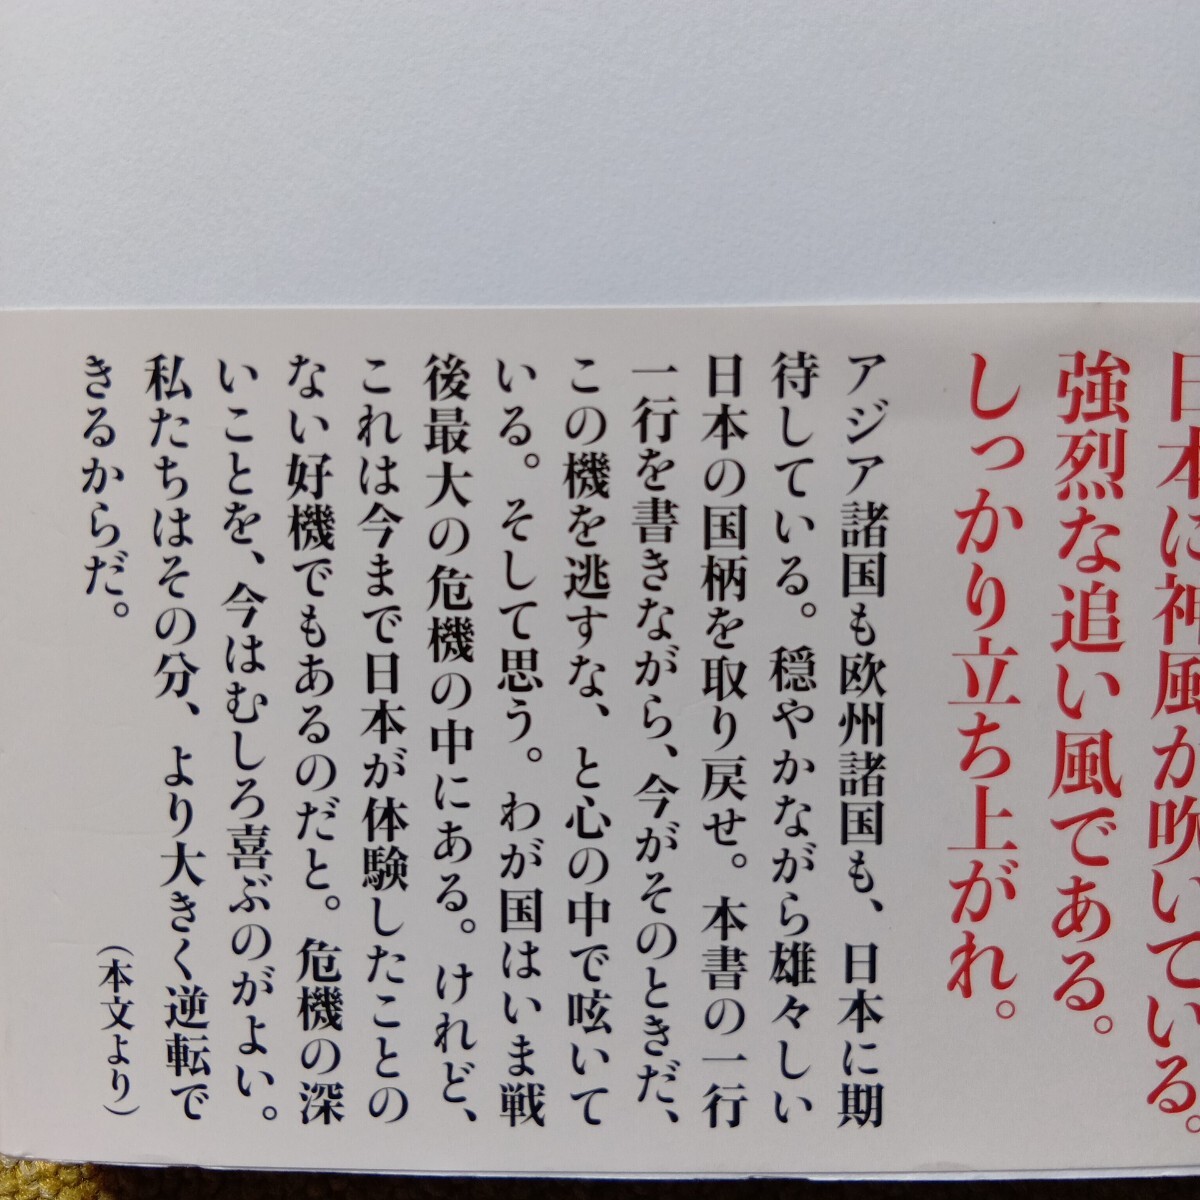 日本に神風が吹いている。
強烈な追い風である。
しっかり立ち上がれ。
アジア諸国も欧州諸国も、日本に期
待している。穏やかながら雄々しい
日本の国柄を取り戻せ。本書の一行
一行を書きながら、今がそのときだ、
この機を逃すな、と心の中で呟いて
いる。そして思う。わが国はいま戦
後最大の危機の中にある。けれど、
これは今まで日本が体験したことの
ない好機でもあるのだと。危機の深
いことを、今はむしろ喜ぶのがよい。
私たちはその分、より大きく逆転で
きるからだ。
（本文より）